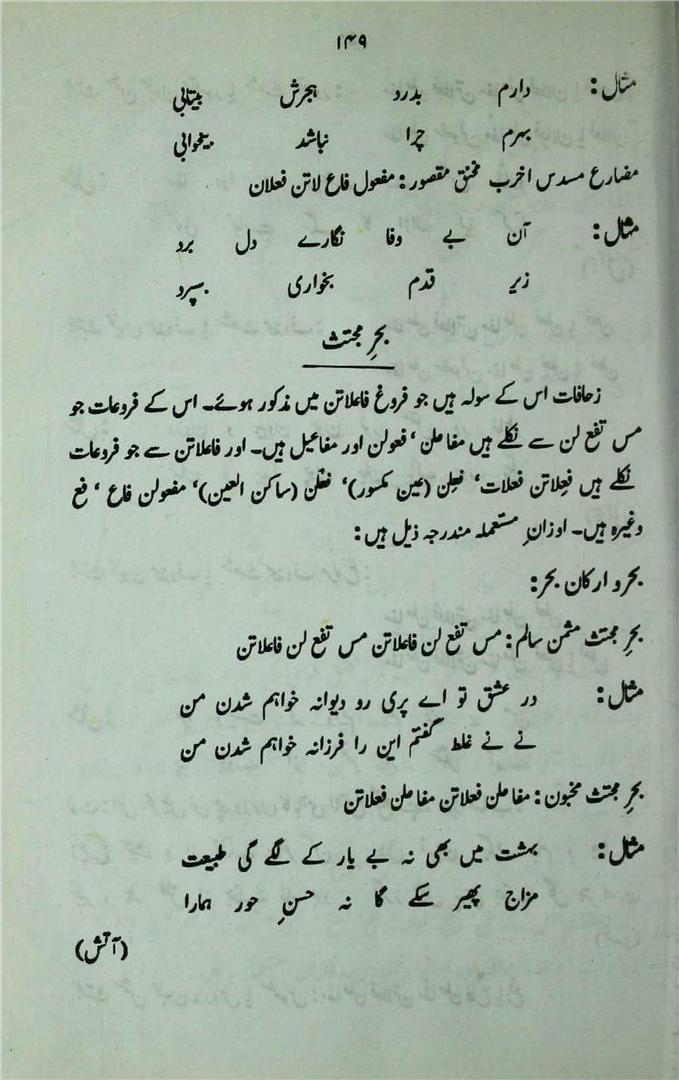 ۱۴۹
مثال: دارم بدرد ہجرش بیتابی
بہرم چرا نباشد بیخوابی
مضارع مسدس اخرب مخنق مقصور: مفعول فاع لاتن فعلان
مثال: آن بے وفا نگارے دل برد
زیر قدم بخواری بسپرد
بحرِ مجتث
زحافات اس کے سولہ ہیں جو فروغ فاعلاتن میں مذکور ہوئے۔ اس کے فروعات جو
مس تفع لن سے نکلے ہیں مفاعلن، فعولن اور مفاعیل ہیں۔ اور فاعلاتن سے جو فروعات
نکلے ہیں فعِلاتن فعلات، فعِلن (عین مکسور)، فعْلن (ساکن العین)، مفعولن فاع، فع
وغیرہ ہیں۔ اوزانِ مستعملہ مندرجہ ذیل ہیں:
بحر و ارکان بحر:
بحرِ مجتث مثمن سالم: مس تفع لن فاعلاتن مس تفع لن فاعلاتن
مثال: در عشق تو اے پری رو دیوانہ خواہم شدن من
نے نے غلط گفتم این را فرزانہ خواہم شدن من
بحرِ مجتث مخبون: مفاعلن فعلاتن مفاعلن فعلاتن
مثال: بہشت میں بھی نہ بے یار کے لگے گی طبیعت
مزاج پھیر سکے گا نہ حسنِ حور ہمارا
(آتش)